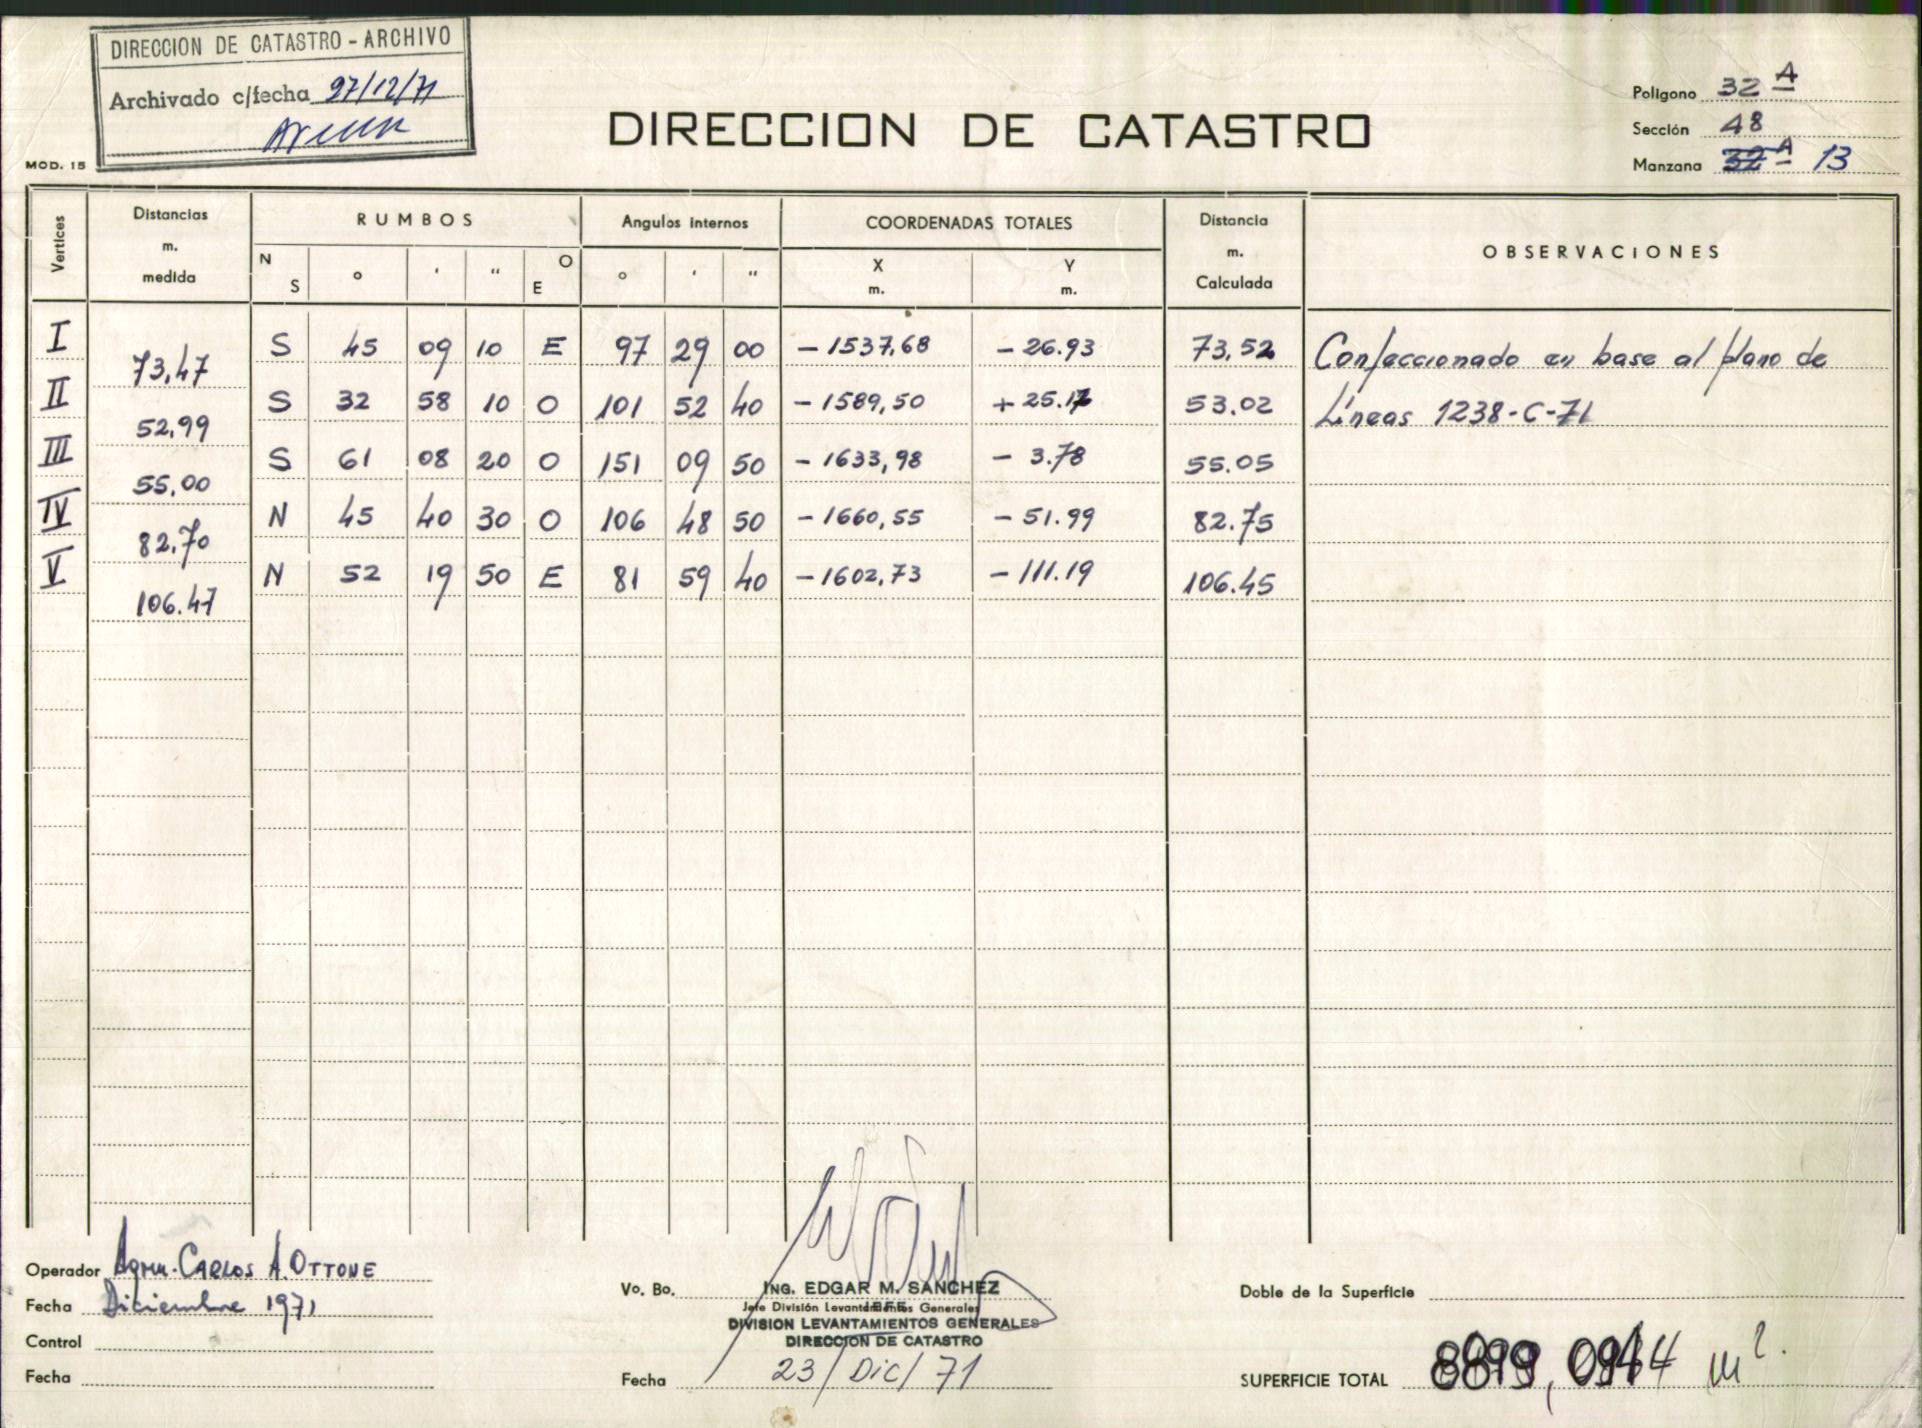 DIRECCION DE CATASTRO - ARCHIVO
Archivado c/fecha 27/12/71
MOD. 15
DIRECCION DE CATASTRO
Poligono 32 A
Sección 48
Manzana 32 A 13
Vertices
Distancias m. medida
RUMBOS
Angulos internos
COORDENADAS TOTALES
Distancia m. Calculada
OBSERVACIONES
N S ° ' " O E ° ' " X m. Y m.
I S 45 09 10 E 97 29 00 - 1537,68 - 26.93 73,52 Confeccionado en base al plano de
73,47
II S 32 58 10 O 101 52 40 - 1589,50 + 25.17 53.02 Líneas 1238-C-71
52,99
III S 61 08 20 O 151 09 50 - 1633,98 - 3.78 55.05
55,00
IV N 45 40 30 O 106 48 50 - 1660,55 - 51.99 82.75
82,70
V N 52 19 50 E 81 59 40 - 1602,73 - 111.19 106.45
106.47
Operador Agrm. CARLOS A. OTTONE
Fecha Diciembre 1971
Control
Fecha
Vo. Bo. ING. EDGAR M. SANCHEZ
Jefe División Levantamientos Generales
JEFE
DIVISION LEVANTAMIENTOS GENERALES
DIRECCION DE CATASTRO
Fecha 23/Dic/71
Doble de la Superficie
SUPERFICIE TOTAL m2.